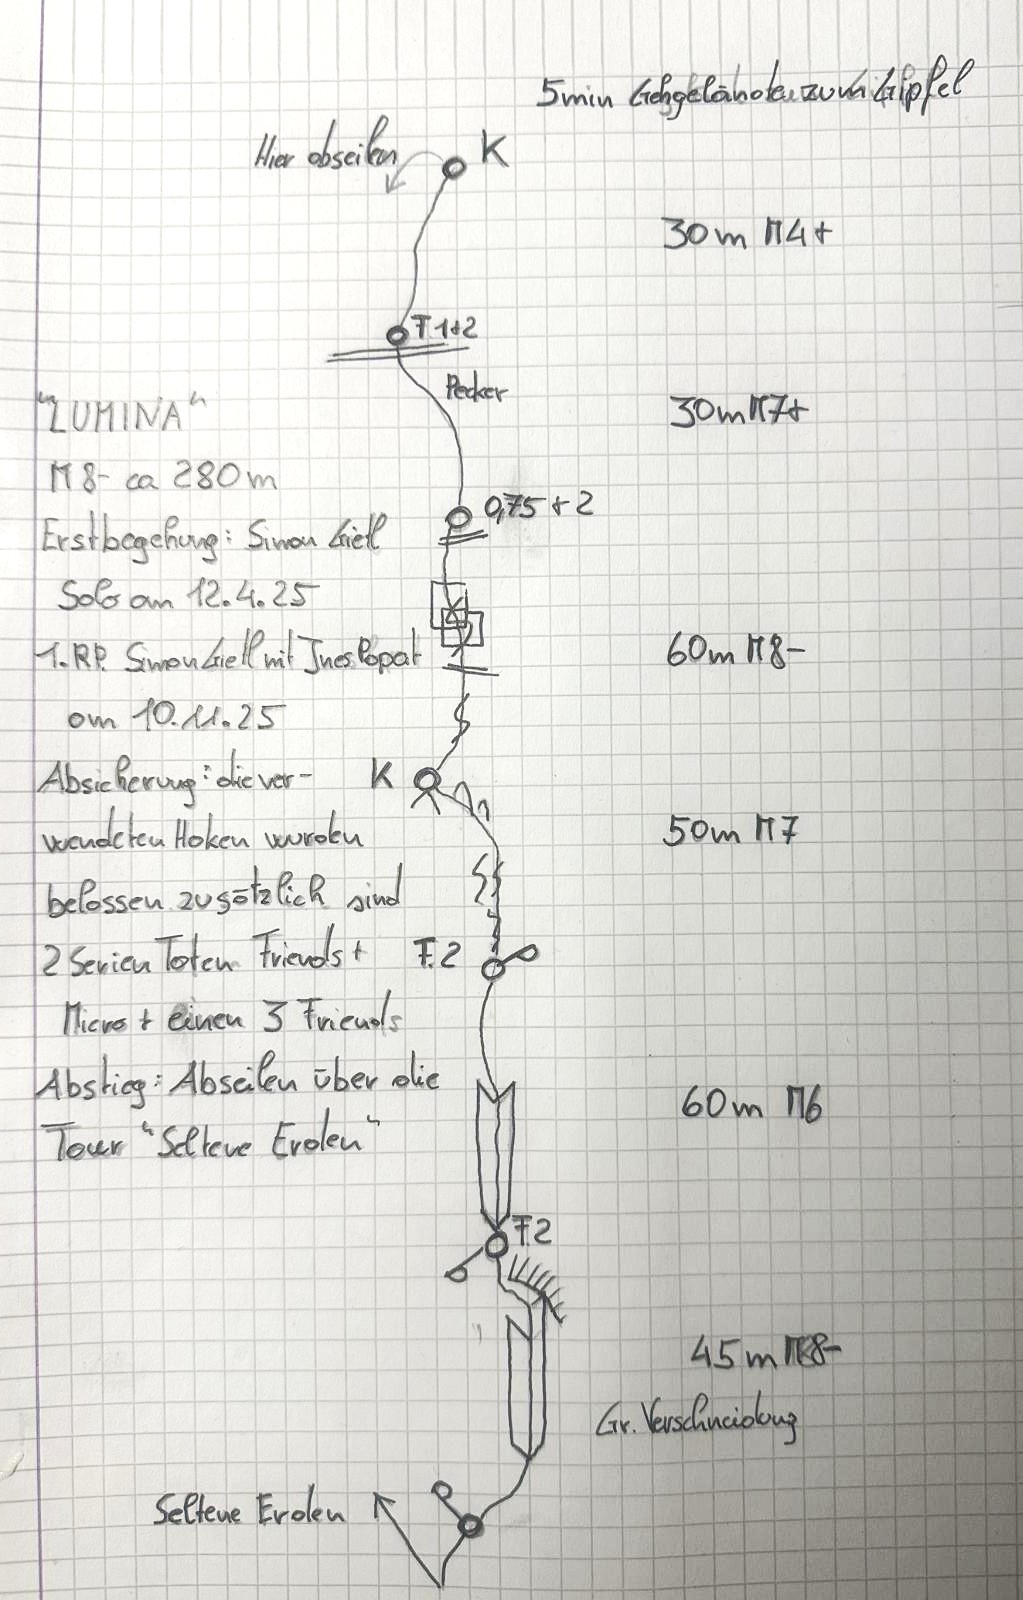 5min Gehgelände zum Gipfel
Hier abseilen
K
30m M4+
F.1+2
Pecker
30m M7+
"LUMINA"
M8- ca 280m
0,75 + 2
Erstbegehung: Simon Gietl
Solo am 12.4.25
1. RP. Simon Gietl mit Ines Papert
60m M8-
am 10.11.25
Absicherung: die ver-
K
wendeten Haken wurden
50m M7
belassen zusätzlich sind
2 Serien Toten Friends +
F.2
Micro + einen 3 Friends
Abstieg: Abseilen über die
60m M6
Tour "Seltene Erden"
F.2
45m M8-
Gr. Verschneidung
Seltene Erden